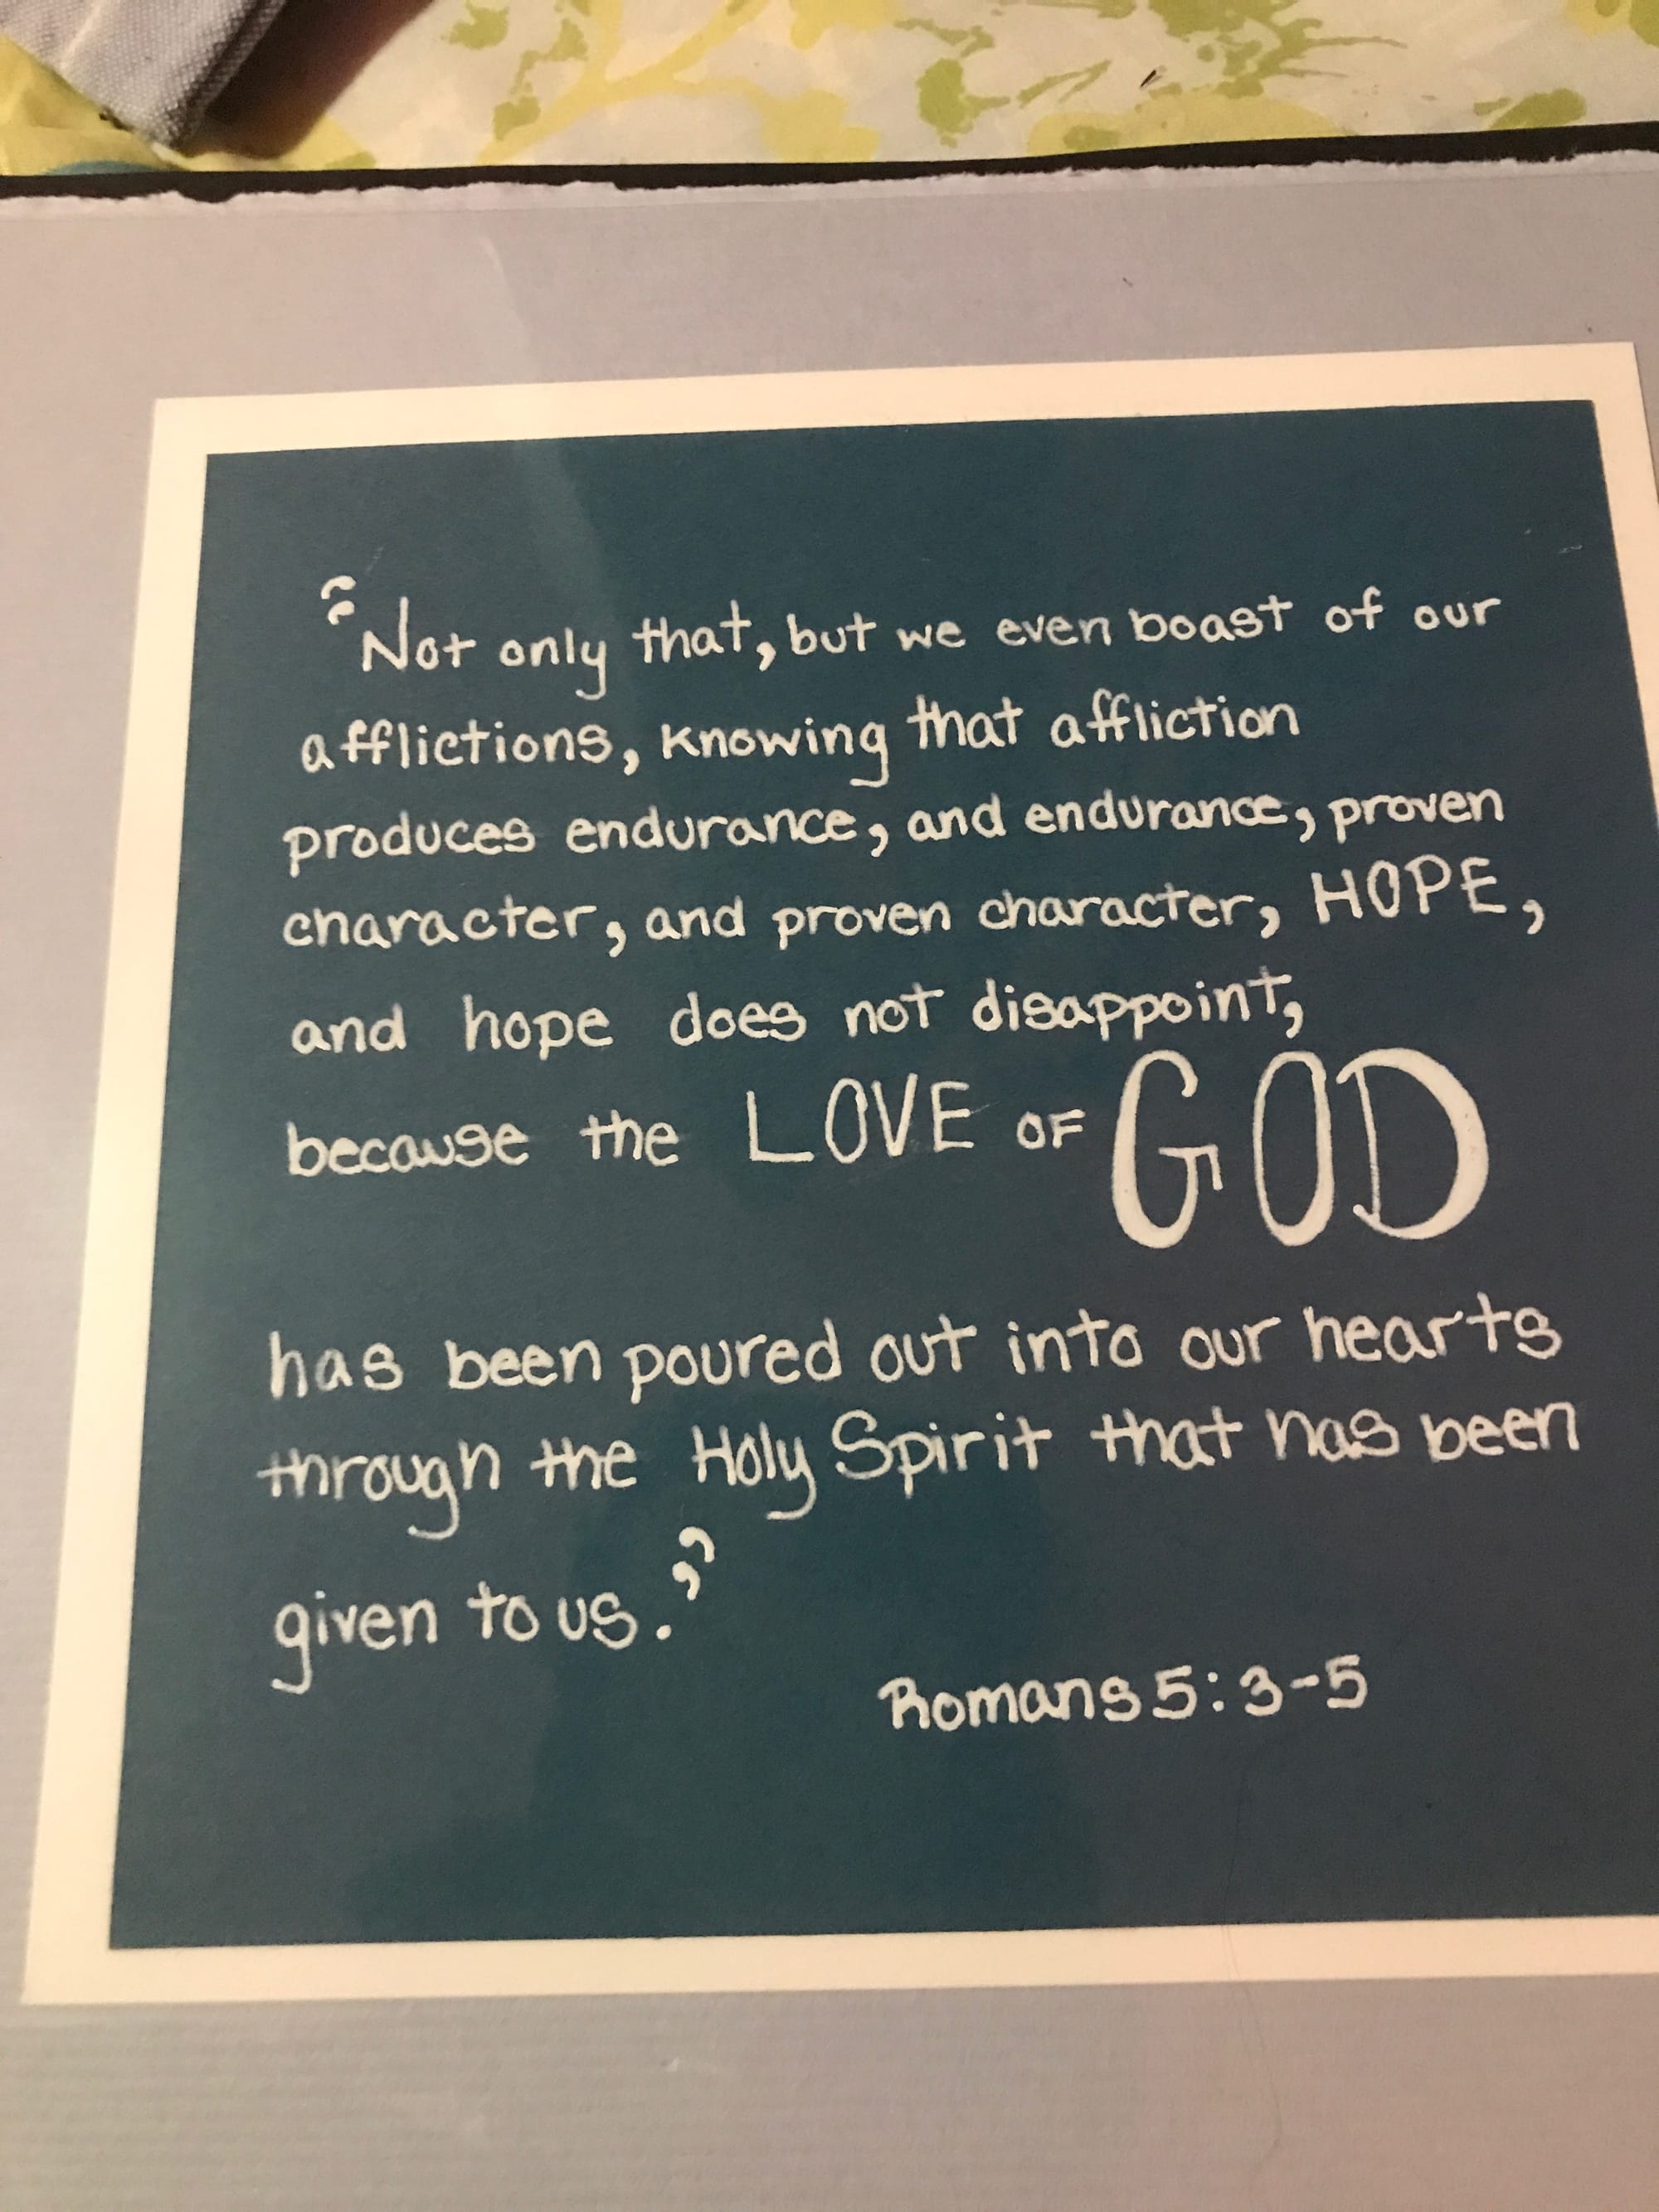 “Not only that, but we even boast of our
afflictions, knowing that affliction
produces endurance, and endurance, proven
character, and proven character, HOPE,
and hope does not disappoint,
because the LOVE OF GOD
has been poured out into our hearts
through the Holy Spirit that has been
given to us.”
Romans 5:3-5